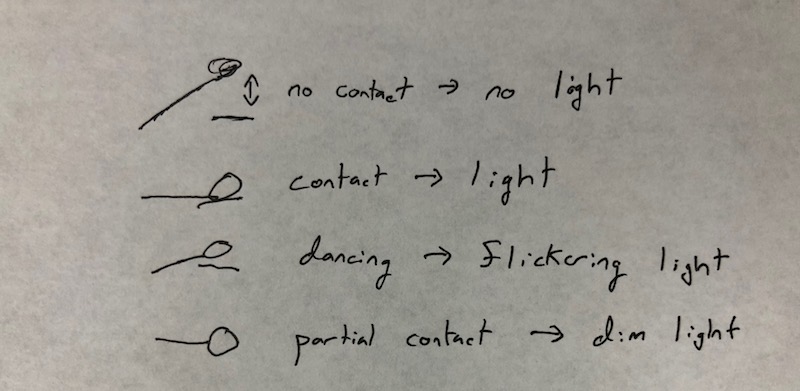 no contact → no light
contact → light
dancing → flickering light
partial contact → dim light